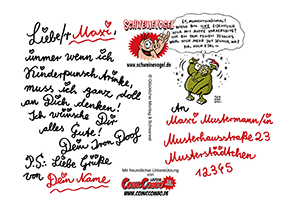 Liebe/r Maxi,
immer wenn ich
Kinderpunsch trinke,
muss ich ganz doll
an Dich denken!
Ich wünsche Dir
alles Gute!
Dein Iron Doof
P.S. Liebe Grüße
von Dein Name
SCHWEINEVOGEL
www.schweinevogel.de
© Glücklicher Montag & Schwarwel
Mit freundlicher Unterstützung
von
COMICCOMBO
LEIPZIG
WWW.COMICCOMBO.DE
An
Maxi Mustermann/in
Musterhausstraße 23
Musterstädtchen
12345